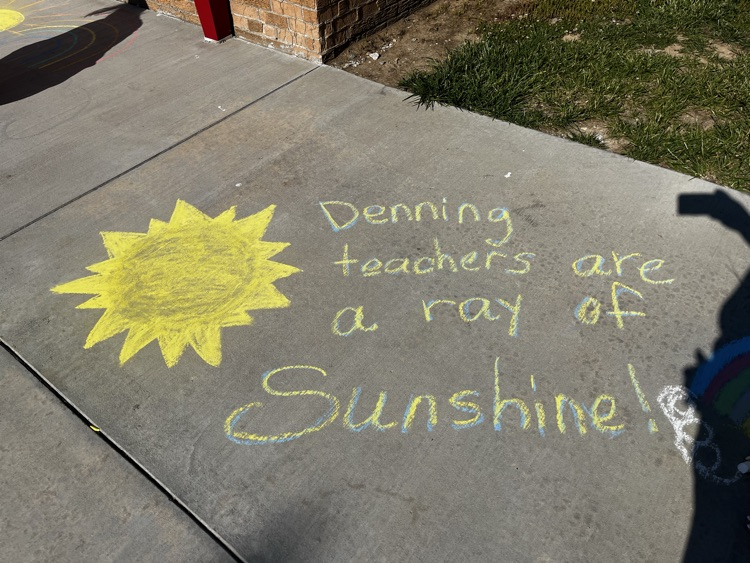 Denning
teachers are
a ray of
Sunshine!